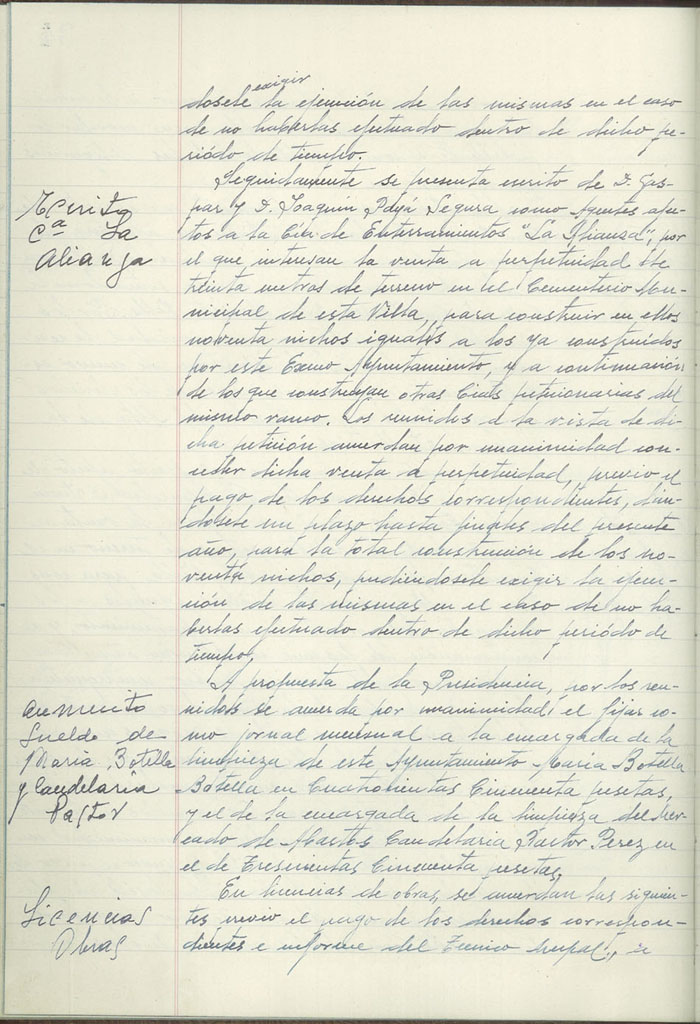 exigir
dosele la ejecución de las mismas en el caso
de no haberlas efectuado dentro de dicho pe-
riódo de tiempo.
Escrito
Cª La
Alianza
Seguidamente se presenta escrito de D. Gas-
par y D. Joaquín Payá Segura como Agentes afec-
tos a la Cía. de Enterramientos "La Alianza", por
el que interesan la venta a perpetuidad de
treinta metros de terreno en el Cementerio Mu-
nicipal de esta Villa, para construir en ellos
noventa nichos iguales a los ya construidos
por este Excmo Ayuntamiento, y a continuación
de los que construyan otras Cías peticionarias del
mismo ramo. Los reunidos a la vista de di-
cha petición acuerdan por unanimidad con-
ceder dicha venta a perpetuidad, previo el
pago de los derechos correspondientes, dán-
dosele un plazo hasta finales del presente
año, para la total construcción de los no-
venta nichos, pudiéndosele exigir la ejecu-
ción de las mismas en el caso de no ha-
berlas efectuado dentro de dicho periódo de
tiempo.
Aumento
Sueldo de
Maria Botella
y Candelaria
Pastor
A propuesta de la Presidencia, por los reu-
nidos se acuerda por unanimidad, el fijar co-
mo jornal mensual a la encargada de la
limpieza de este Ayuntamiento Maria Botella
Botella en Cuatrocientas Cincuenta pesetas,
y el de la encargada de la limpieza del Mer-
cado de Abastos Candelaria Pastor Perez en
el de Trescientas Cincuenta pesetas.
Licencias
Obras
En licencias de obras, se acuerdan las siguien-
tes previo el pago de los derechos correspon-
dientes e informe del Tecnico mupal.,